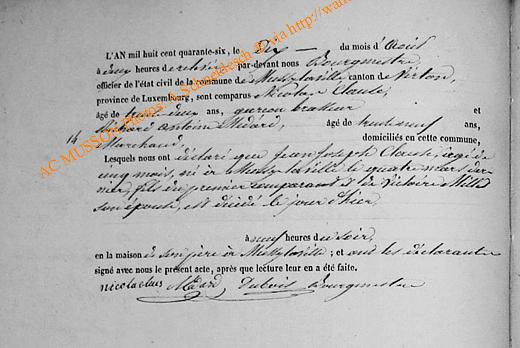 L'AN mil huit cent quarante-six, le Dix — du mois d'Août
à deux heures de relevée par-devant nous Bourgmestre,
officier de l'état civil de la commune de Mussy-la-ville canton de Virton,
province de Luxembourg, sont comparus Nicolas Claude,
âgé de trente deux ans, garçon brasseur et
14 Richard antoine Médard, âgé de trente neuf ans,
Marchand, domiciliés en cette commune,
Lesquels nous ont déclaré que Jean Joseph Claude, âgé de
cinq mois, né à Mussy-la-ville le quatre mars der-
nier, fils du premier comparant et de Victoire
son épouse, est décédé le jour d'hier
à neuf heures du soir,
en la maison de son père à Mussy-la-ville; et ont les déclarants
signé avec nous le présent acte, après que lecture leur en a été faite.
nicolas Médard Dubois Bourgmestre
AC MUSSON Photos A. Schneidesch